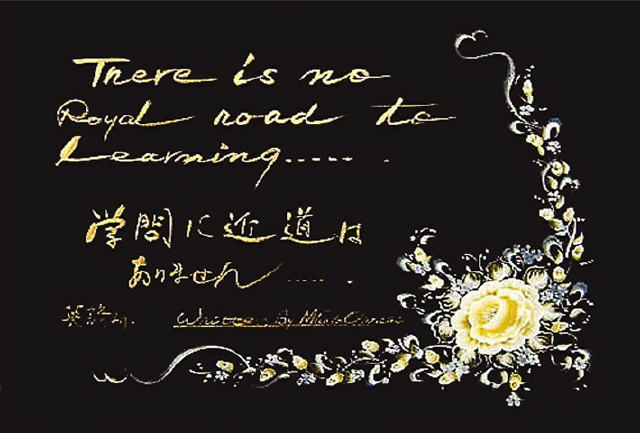 There is no
Royal road to
Learning........
学問に近道は
ありません......
By